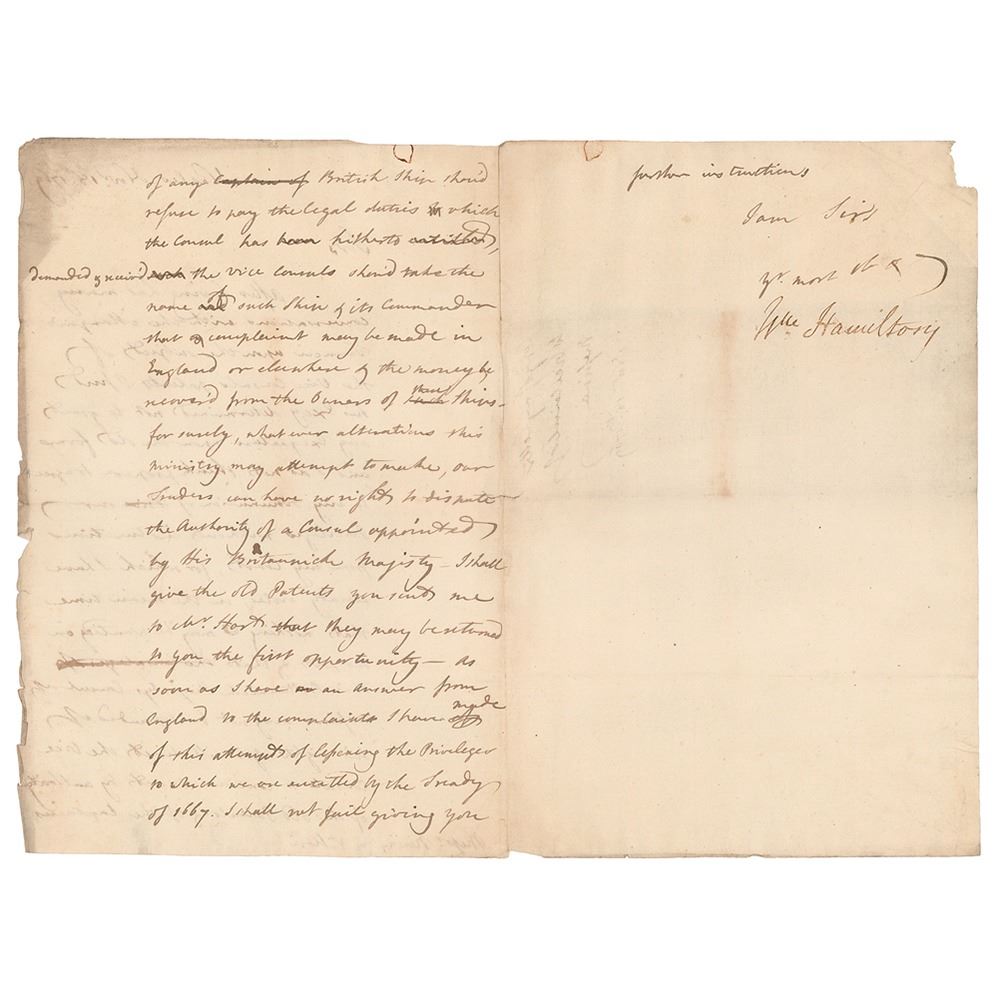 of any Captain of British Ship shou'd
refuse to pay the legal duties which
the Consul has been hitherto entitled,
demanded & receiv'd the Vice Consuls shou'd take the
name of such Ship & its Commander
that a complaint may be made in
England or elsewhere & the money be
recover'd from the Owners of those Ships -
for surely, what ever alterations this
Ministry may attempt to make, our
Traders can have no right to dispute
the Authority of a Consul appointed
by His Britannick Majesty - I shall
give the old Patents you sent me
to Mr. Hart that they may be returned
to you the first opportunity - as
soon as I have an answer from
England to the complaints I have made
of this attempt of lessening the Privileges
to which we are entitled by the Treaty
of 1667. I shall not fail giving you
further instructions
I am Sir
yr. most ob
Wm Hamilton